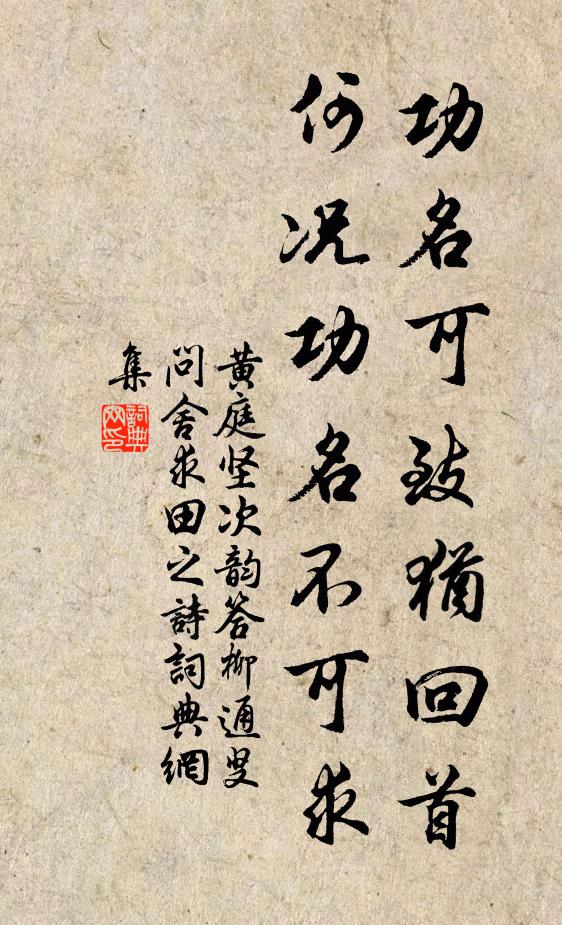 功名可致猶回首
何况功名不可求
黄庭坚次韵答柳通叟
問舍求田之詩詞典網
集
詞典
网印